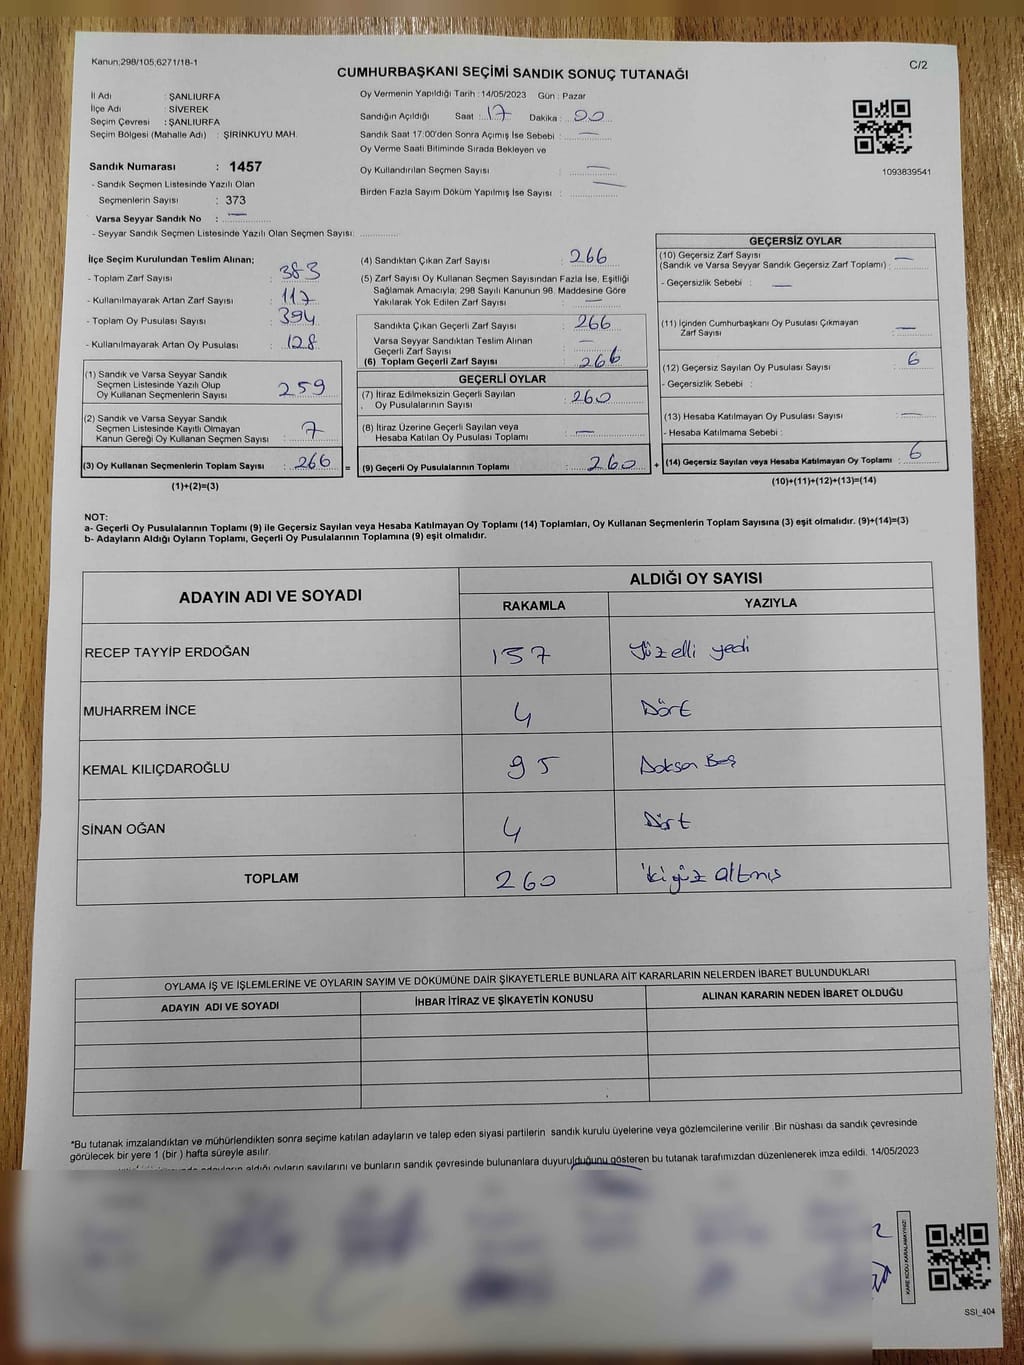 Kanun;298/105;6271/18-1
C/2
CUMHURBAŞKANI SEÇİMİ SANDIK SONUÇ TUTANAĞI
İl Adı : ŞANLIURFA
İlçe Adı : SİVEREK
Seçim Çevresi : ŞANLIURFA
Seçim Bölgesi (Mahalle Adı) : ŞİRİNKUYU MAH.
Sandık Numarası : 1457
- Sandık Seçmen Listesinde Yazılı Olan
Seçmenlerin Sayısı : 373
Varsa Seyyar Sandık No : —
- Seyyar Sandık Seçmen Listesinde Yazılı Olan Seçmen Sayısı:
Oy Vermenin Yapıldığı Tarih : 14/05/2023 Gün : Pazar
Sandığın Açıldığı Saat : 17 Dakika : 00
Sandık Saat 17:00'den Sonra Açımış İse Sebebi : —
Oy Verme Saati Bitiminde Sırada Bekleyen ve
Oy Kullandırılan Seçmen Sayısı : —
Birden Fazla Sayım Döküm Yapılmış İse Sayısı : —
1093839541
İlçe Seçim Kurulundan Teslim Alınan;
- Toplam Zarf Sayısı : 383
- Kullanılmayarak Artan Zarf Sayısı : 117
- Toplam Oy Pusulası Sayısı : 394
- Kullanılmayarak Artan Oy Pusulası : 128
(1) Sandık ve Varsa Seyyar Sandık
Seçmen Listesinde Yazılı Olup
Oy Kullanan Seçmenlerin Sayısı : 259
(2) Sandık ve Varsa Seyyar Sandık
Seçmen Listesinde Kayıtlı Olmayan
Kanun Gereği Oy Kullanan Seçmen Sayısı : 7
(3) Oy Kullanan Seçmenlerin Toplam Sayısı : 266 =
(1)+(2)=(3)
(4) Sandıktan Çıkan Zarf Sayısı : 266
(5) Zarf Sayısı Oy Kullanan Seçmen Sayısından Fazla İse, Eşitliği
Sağlamak Amacıyla; 298 Sayılı Kanunun 98. Maddesine Göre
Yakılarak Yok Edilen Zarf Sayısı : —
Sandıkta Çıkan Geçerli Zarf Sayısı : 266
Varsa Seyyar Sandıktan Teslim Alınan
Geçerli Zarf Sayısı : —
(6) Toplam Geçerli Zarf Sayısı : 266
GEÇERLİ OYLAR
(7) İtiraz Edilmeksizin Geçerli Sayılan
Oy Pusulalarının Sayısı : 260
(8) İtiraz Üzerine Geçerli Sayılan veya
Hesaba Katılan Oy Pusulası Toplamı : —
(9) Geçerli Oy Pusulalarının Toplamı : 260 +
GEÇERSİZ OYLAR
(10) Geçersiz Zarf Sayısı
(Sandık ve Varsa Seyyar Sandık Geçersiz Zarf Toplamı) : —
- Geçersizlik Sebebi : —
(11) İçinden Cumhurbaşkanı Oy Pusulası Çıkmayan
Zarf Sayısı : —
(12) Geçersiz Sayılan Oy Pusulası Sayısı : 6
- Geçersizlik Sebebi :
(13) Hesaba Katılmayan Oy Pusulası Sayısı : —
- Hesaba Katılmama Sebebi :
(14) Geçersiz Sayılan veya Hesaba Katılmayan Oy Toplamı : 6
(10)+(11)+(12)+(13)=(14)
NOT:
a- Geçerli Oy Pusulalarının Toplamı (9) ile Geçersiz Sayılan veya Hesaba Katılmayan Oy Toplamı (14) Toplamları, Oy Kullanan Seçmenlerin Toplam Sayısına (3) eşit olmalıdır. (9)+(14)=(3)
b- Adayların Aldığı Oyların Toplamı, Geçerli Oy Pusulalarının Toplamına (9) eşit olmalıdır.
ADAYIN ADI VE SOYADI
ALDIĞI OY SAYISI
RAKAMLA YAZIYLA
RECEP TAYYİP ERDOĞAN 157 Yüz elli yedi
MUHARREM İNCE 4 Dört
KEMAL KILIÇDAROĞLU 95 Doksan Beş
SİNAN OĞAN 4 Dört
TOPLAM 260 iki yüz altmış
OYLAMA İŞ VE İŞLEMLERİNE VE OYLARIN SAYIM VE DÖKÜMÜNE DAİR ŞİKAYETLERLE BUNLARA AİT KARARLARIN NELERDEN İBARET BULUNDUKLARI
ADAYIN ADI VE SOYADI İHBAR İTİRAZ VE ŞİKAYETİN KONUSU ALINAN KARARIN NEDEN İBARET OLDUĞU
*Bu tutanak imzalandıktan ve mühürlendikten sonra seçime katılan adayların ve talep eden siyasi partilerin sandık kurulu üyelerine veya gözlemcilerine verilir .Bir nüshası da sandık çevresinde
görülecek bir yere 1 (bir ) hafta süreyle asılır.
adayların aldığı oyların sayılarını ve bunların sandık çevresinde bulunanlara duyurulduğunu gösteren bu tutanak tarafımızdan düzenlenerek imza edildi. 14/05/2023
KARE KODU KARALAMAYINIZ!
SSI_404